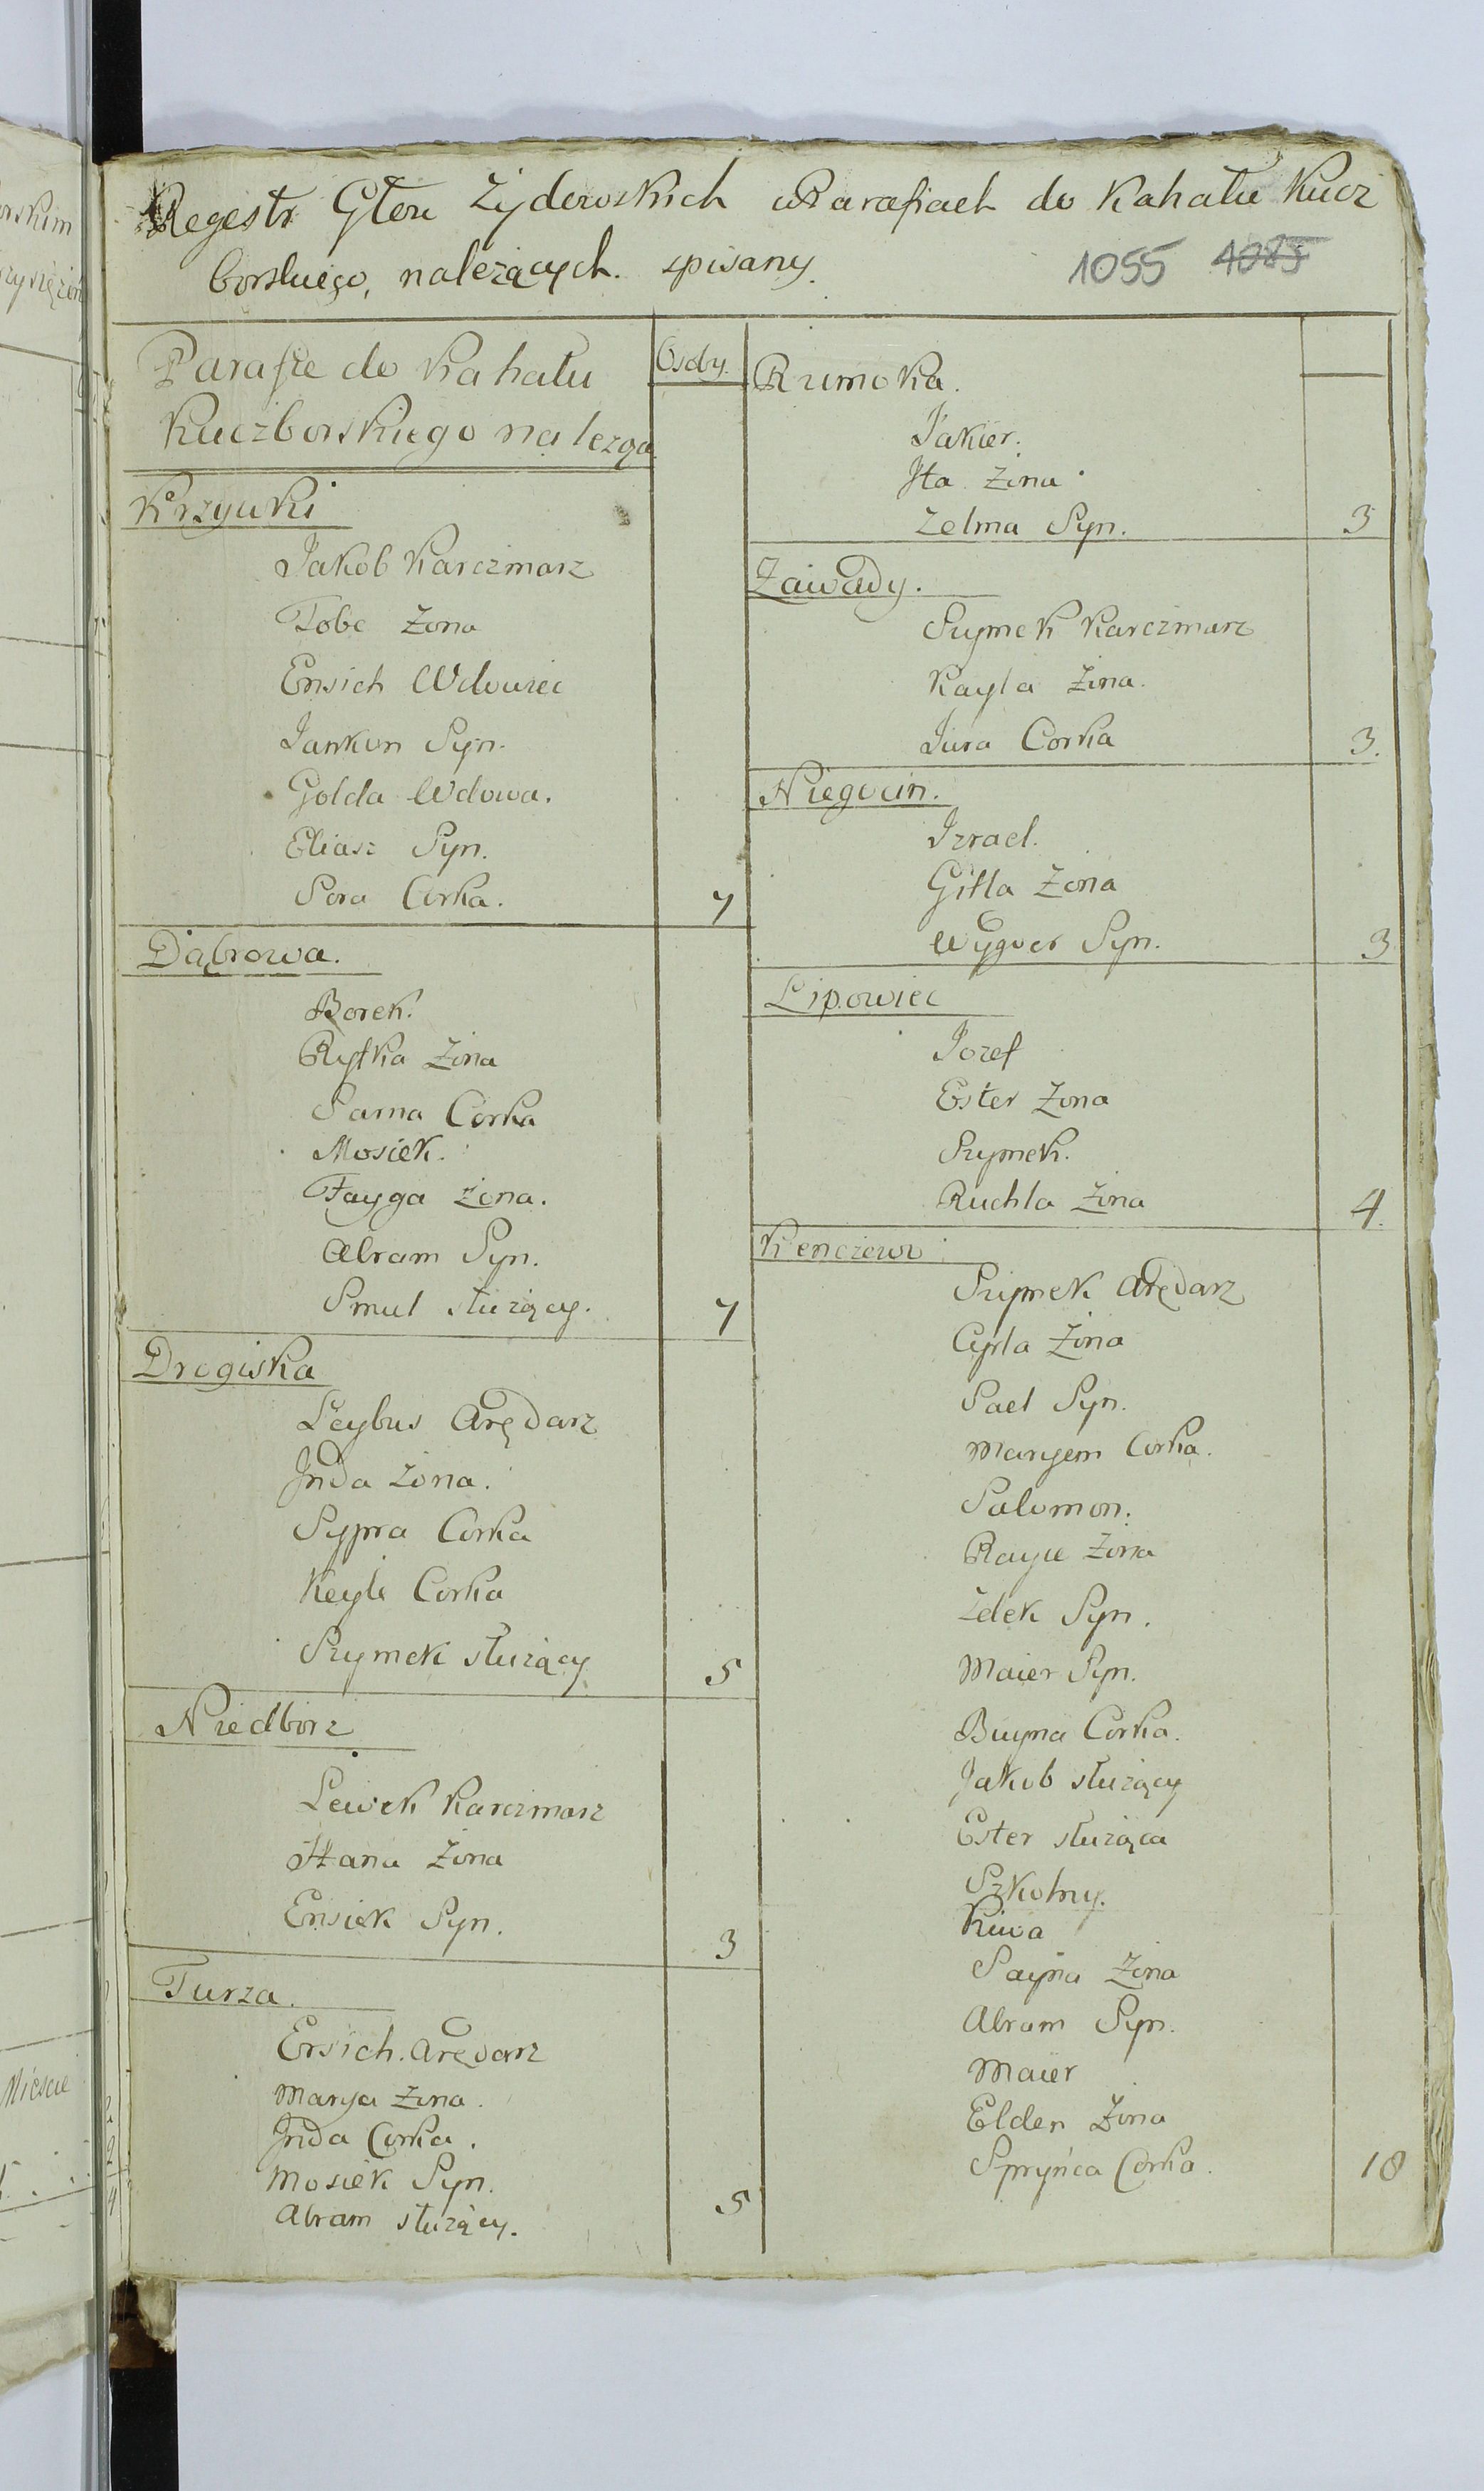 Regestr Głow Żydowskich w Parafiach do Kahału Kucz
borskiego, należących. spisany.
1055 1085
Parafie do Kahału
Kuczborskiego należą.
Osoby.
Krzywki
Jakob Karczmarz
Tobe Zona
Ensich Wdowiec
Jankon Syn.
Golda Wdowa.
Eliasz Syn.
Sora Corka.
7
Dąbrowa.
Borek.
Ryfka Zona
Sarna Corka
Mosiek.
Fayga Zona.
Abram Syn.
Smul służący.
7
Drogiska
Leybus Arędarz
Jnda Zona.
Sypra Corka
Keyla Corka
Szymek służący
5
Niedborz
Lewek Karczmarz
Hana Zona
Ensiek Syn.
3
Turza.
Ersich. Arędarz
Marya Zona.
Jnda Corka.
Mosiek Syn.
Abram służący.
5
Rumoka.
Jakier.
Jta Zona
Zelma Syn.
3
Zawady.
Szymek Karczmarz
Kayla Zona.
Jura Corka
3.
Niegocin.
Jzrael.
Gitla Zona
Wygver Syn.
3
Lipowiec
Jozef
Ester Zona
Szymek.
Ruchla Zona
4.
Kenczewo
Szymek Arędarz
Cyrla Zona
Sael Syn.
Maryem Corka.
Salomon.
Rayze Zona
Zelek Syn.
Maier Syn.
Buyna Corka.
Jakob służący
Ester służąca
Szkolny.
Kiwa
Sayna Zona
Abram Syn.
Maier
Elden Zona
Spryńca Corka.
18